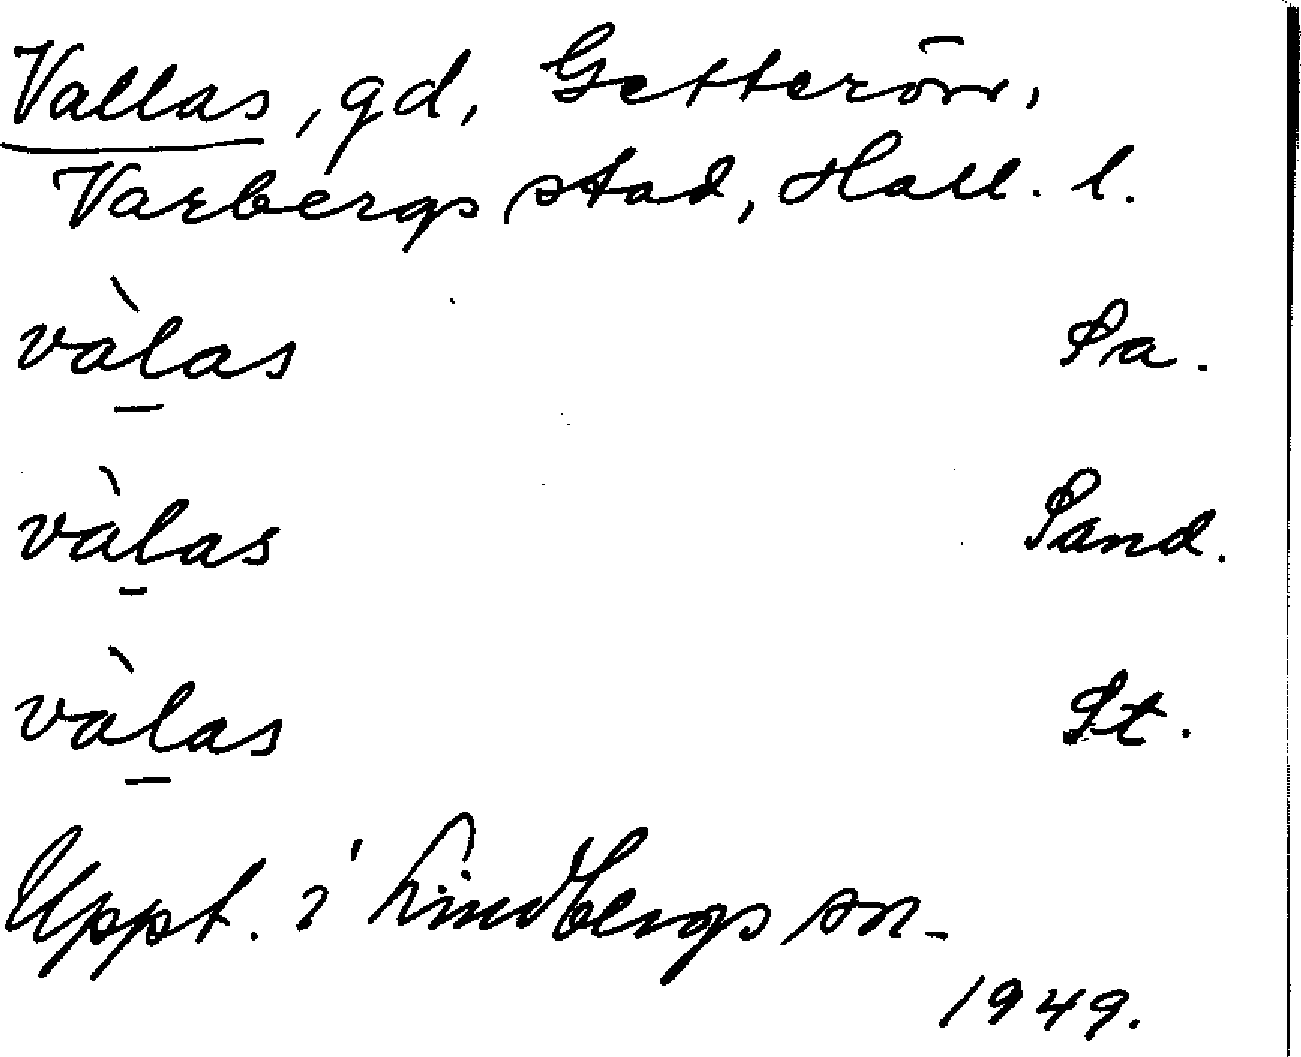 Vallas, gd, Getterön,
Varbergs stad, Hall. l.
vàlas Sa.
vàlas Sand.
vàlas St.
Uppt. i Lindbergs sn.
1949.